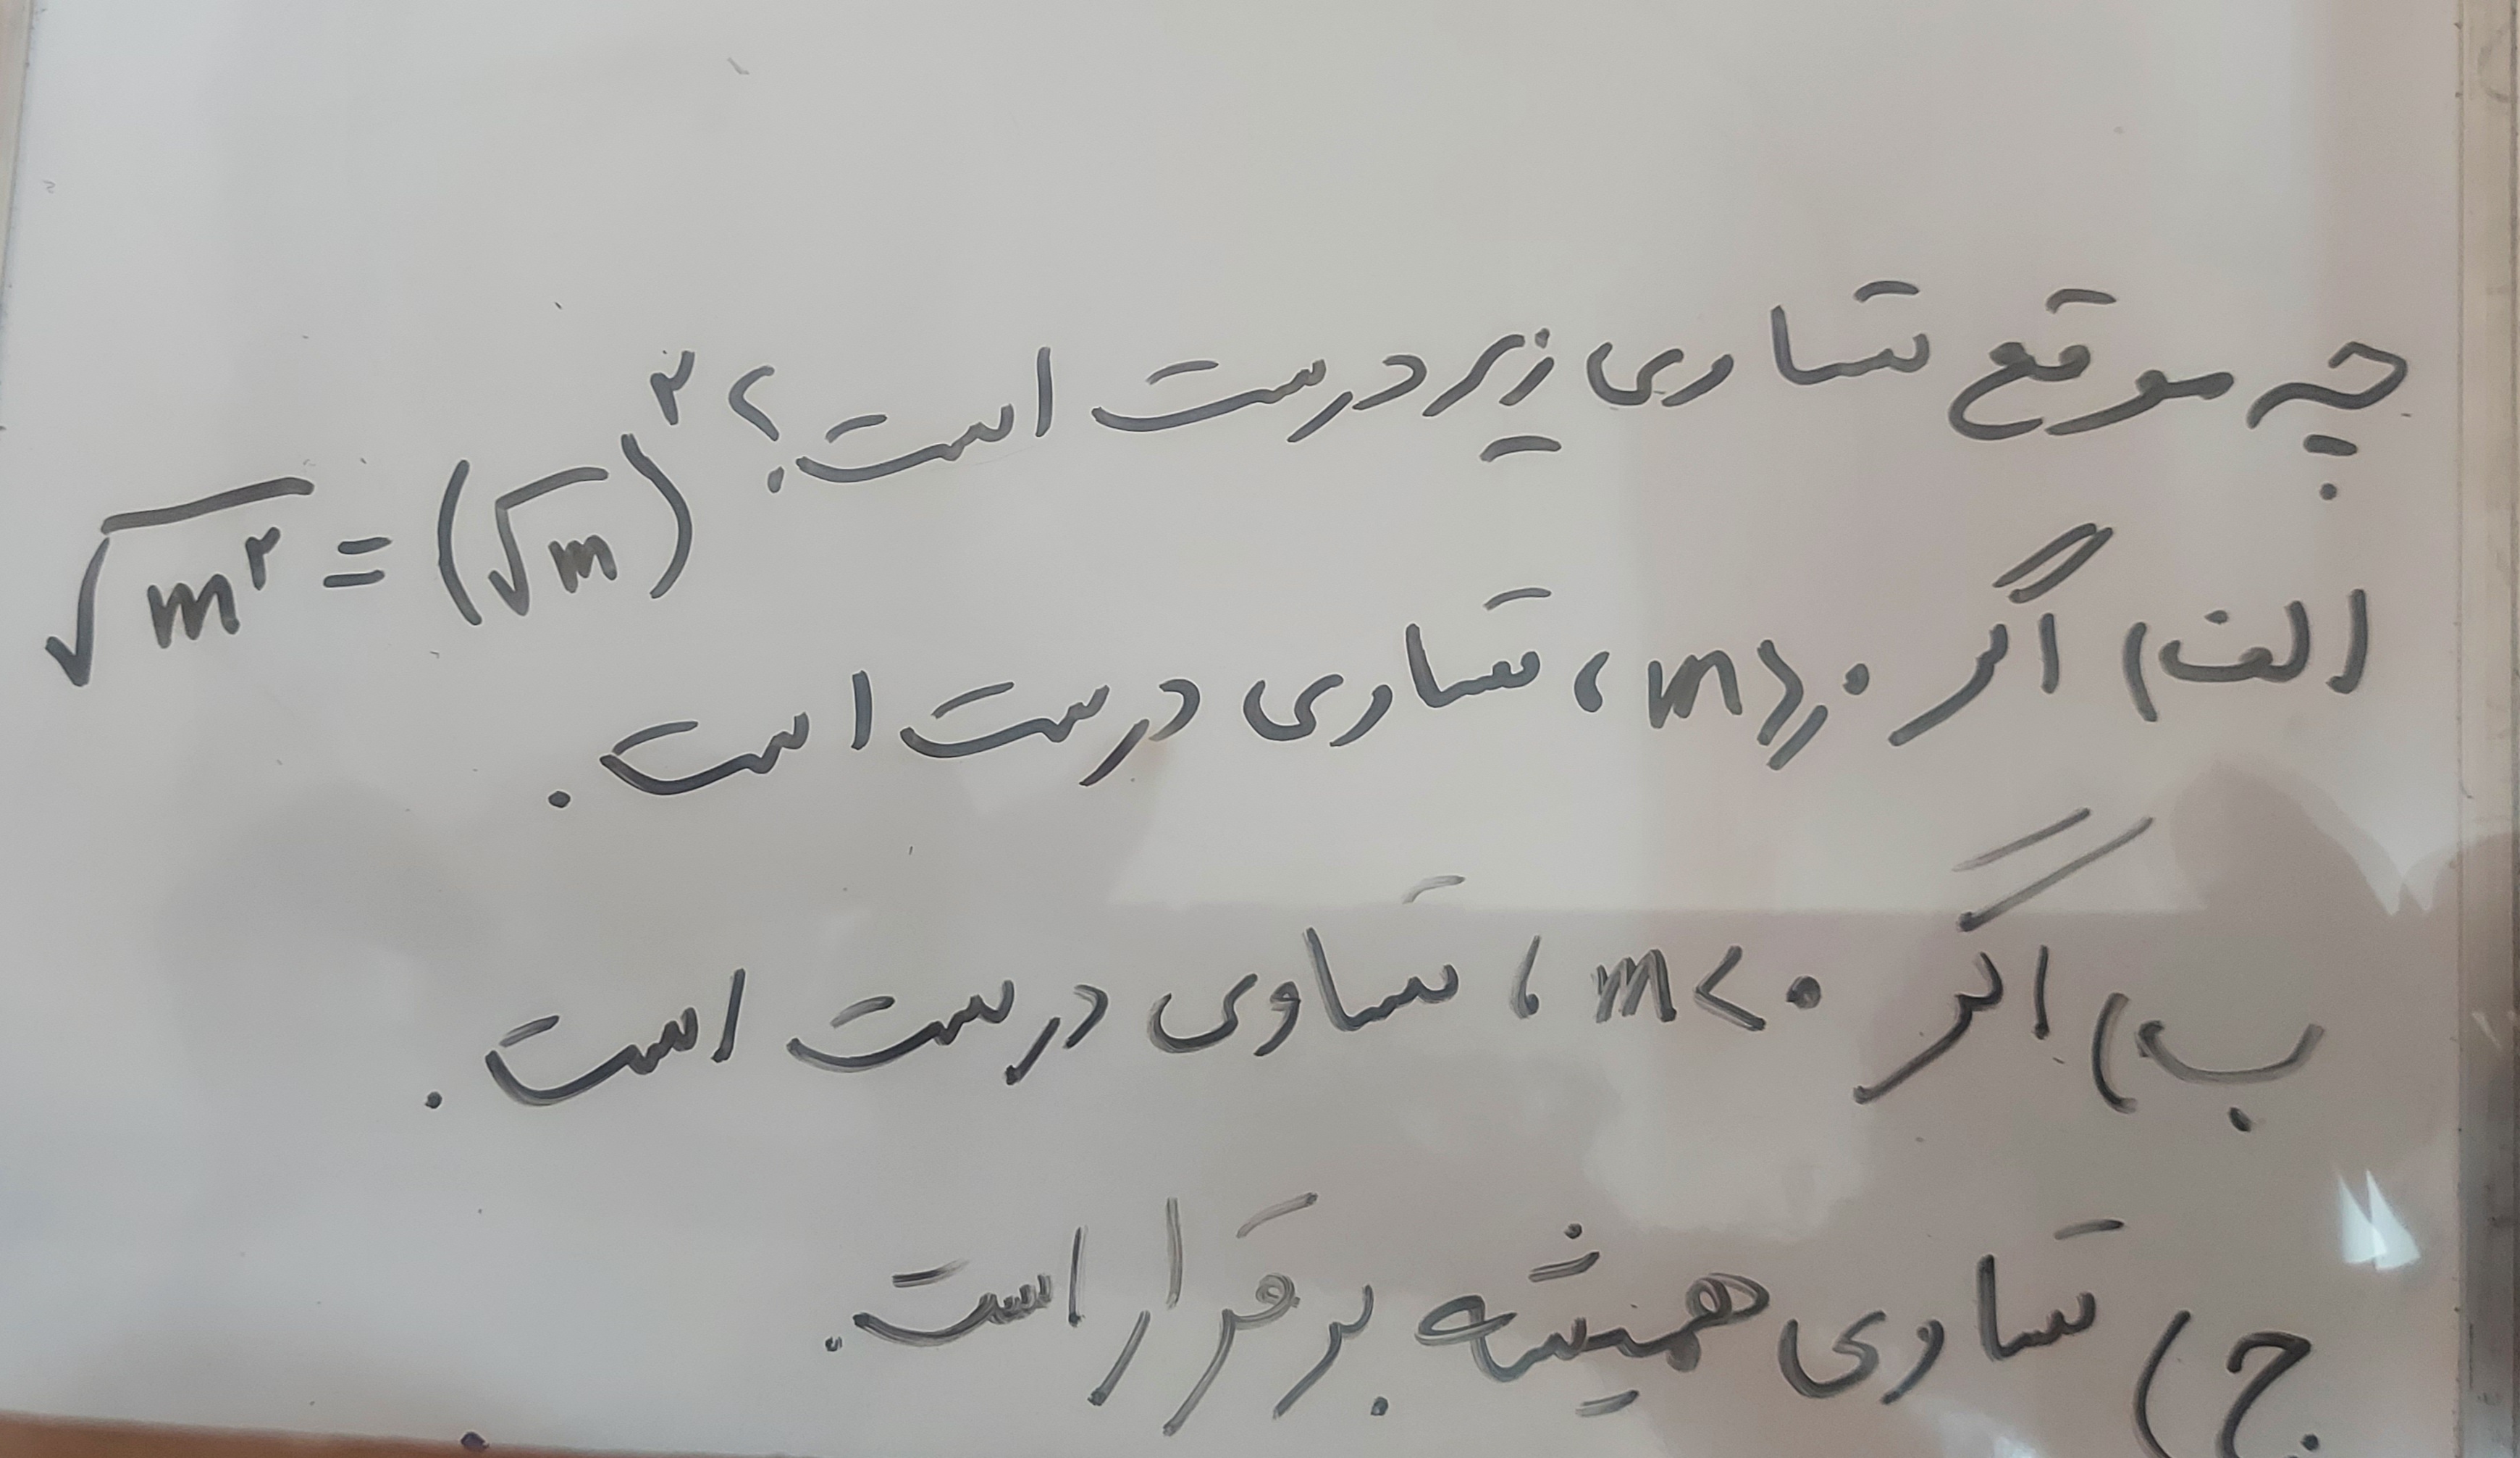 چه موقع تساوی زیر درست است؟
√m² = (√m)²
الف) اگر m ≥ ۰ ، تساوی درست است .
ب) اگر m < ۰ ، تساوی درست است .
ج) تساوی همیشه برقرار است .